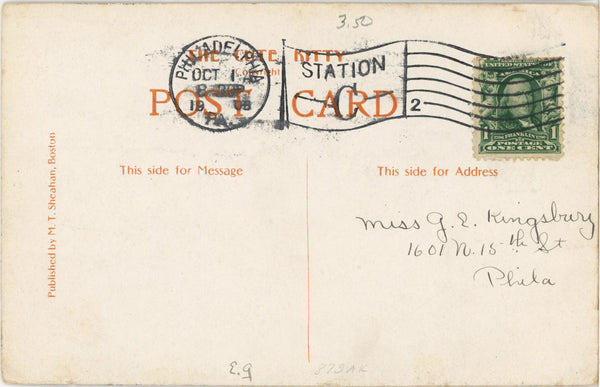 3.50
THE CUTE KITTY
Copyright
POST CARD
PHILADELPHIA
OCT 1
8
19 08
PA.
STATION
C
2
UNITED STATES OF
1 FRANKLIN 1
POSTAGE
ONE CENT
This side for Message
This side for Address
Published by M. T. Sheahan, Boston
Miss G. E. Kingsbury
1601 N. 15th St
Phila
E.g